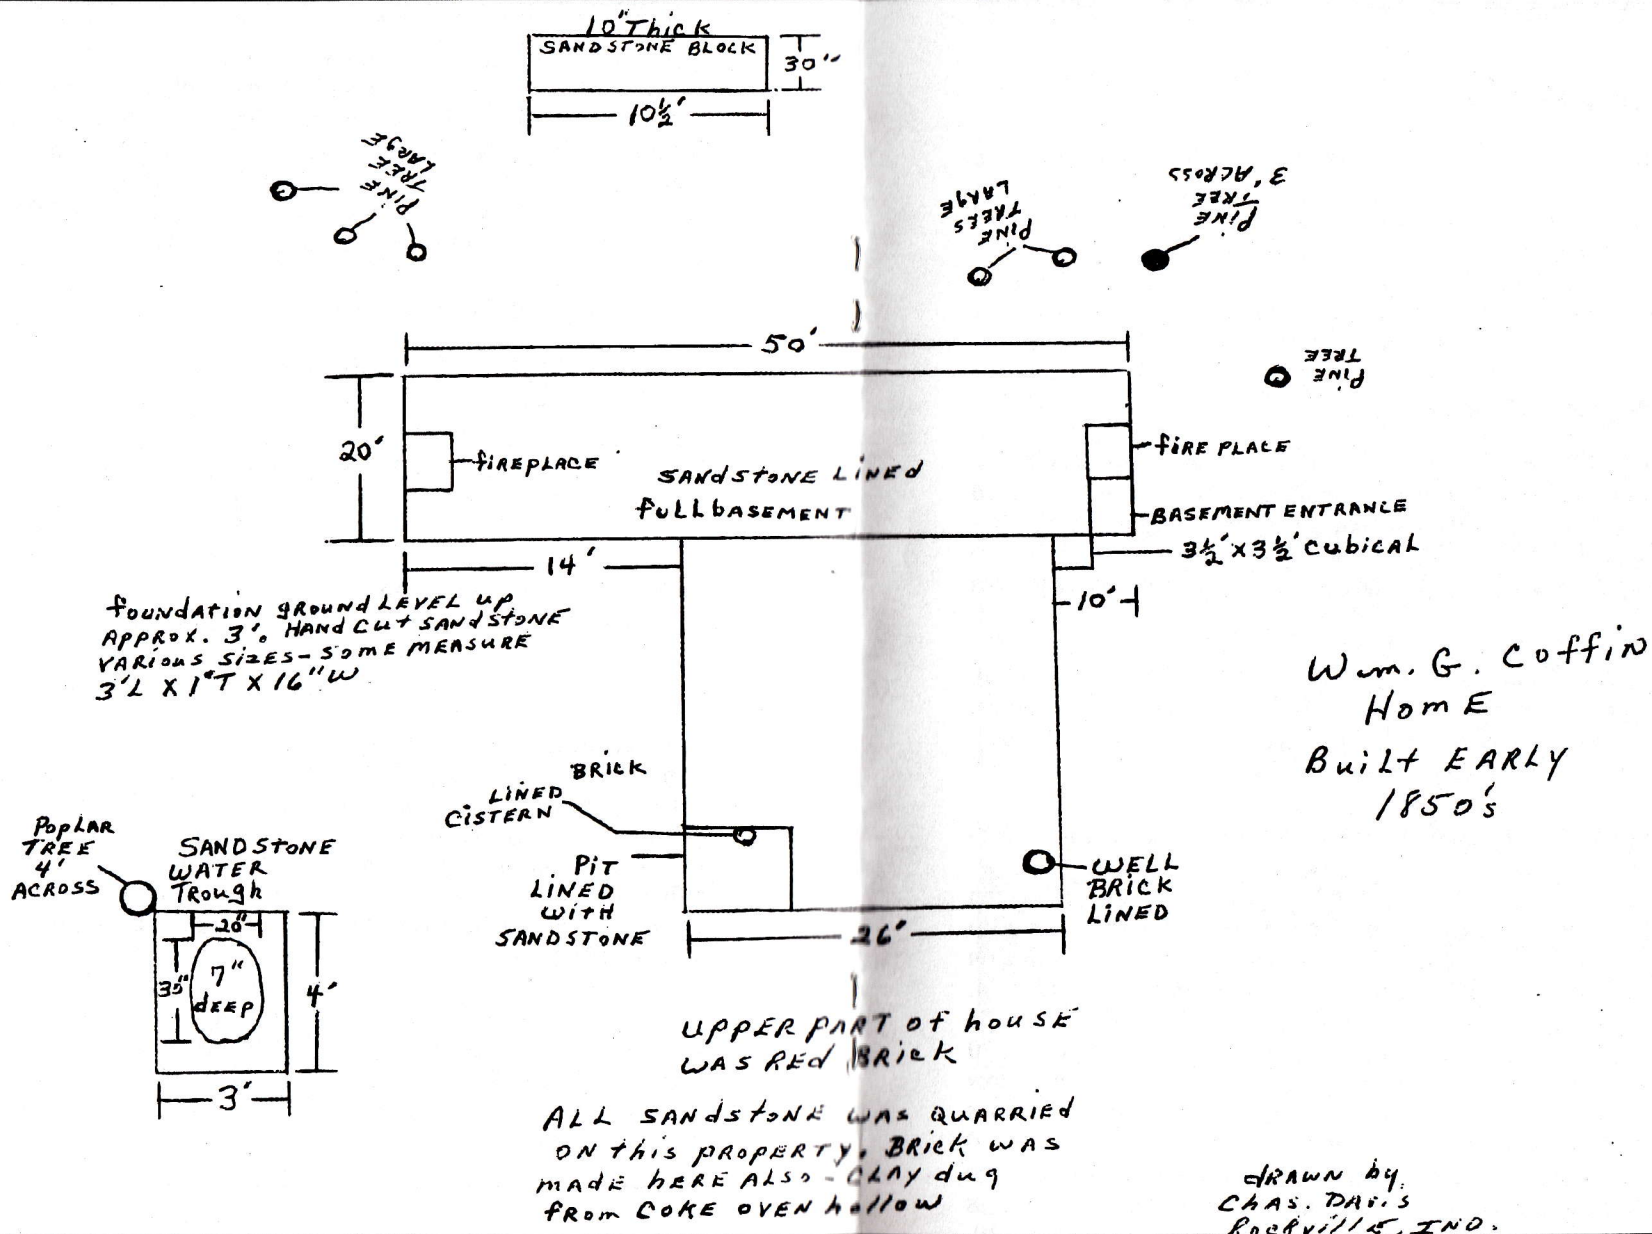 10" Thick
SANDSTONE BLOCK
30"
10½'
PINE
TREE
LARGE
PINE
TREES
LARGE
PINE
TREE
3' ACROSS
PINE
TREE
50'
20'
FIREPLACE
SANDSTONE LINED
FULL BASEMENT
FIRE PLACE
BASEMENT ENTRANCE
3½' X 3½' CUBICAL
14'
10'
FOUNDATION GROUND LEVEL UP
APPROX. 3'. HAND CUT SANDSTONE
VARIOUS SIZES - SOME MEASURE
3'L X 1'T X 16"W
Wm. G. Coffin
HomE
Built EARLY
1850's
BRICK
LINED
CISTERN
PIT
LINED
WITH
SANDSTONE
WELL
BRICK
LINED
26'
POPLAR
TREE
4'
ACROSS
SANDSTONE
WATER
Trough
20"
30"
7"
dEEP
4'
3'
UPPER PART of housE
WAS REd BRick
ALL SANdstoNE WAS QUARRIED
ON this PROPERTY. BRick WAS
mADE hERE ALSo - CLAY dug
fRom COKE OVEN hollow
dRAWN by
CHAS. DAVIS
RockvillE, IND.